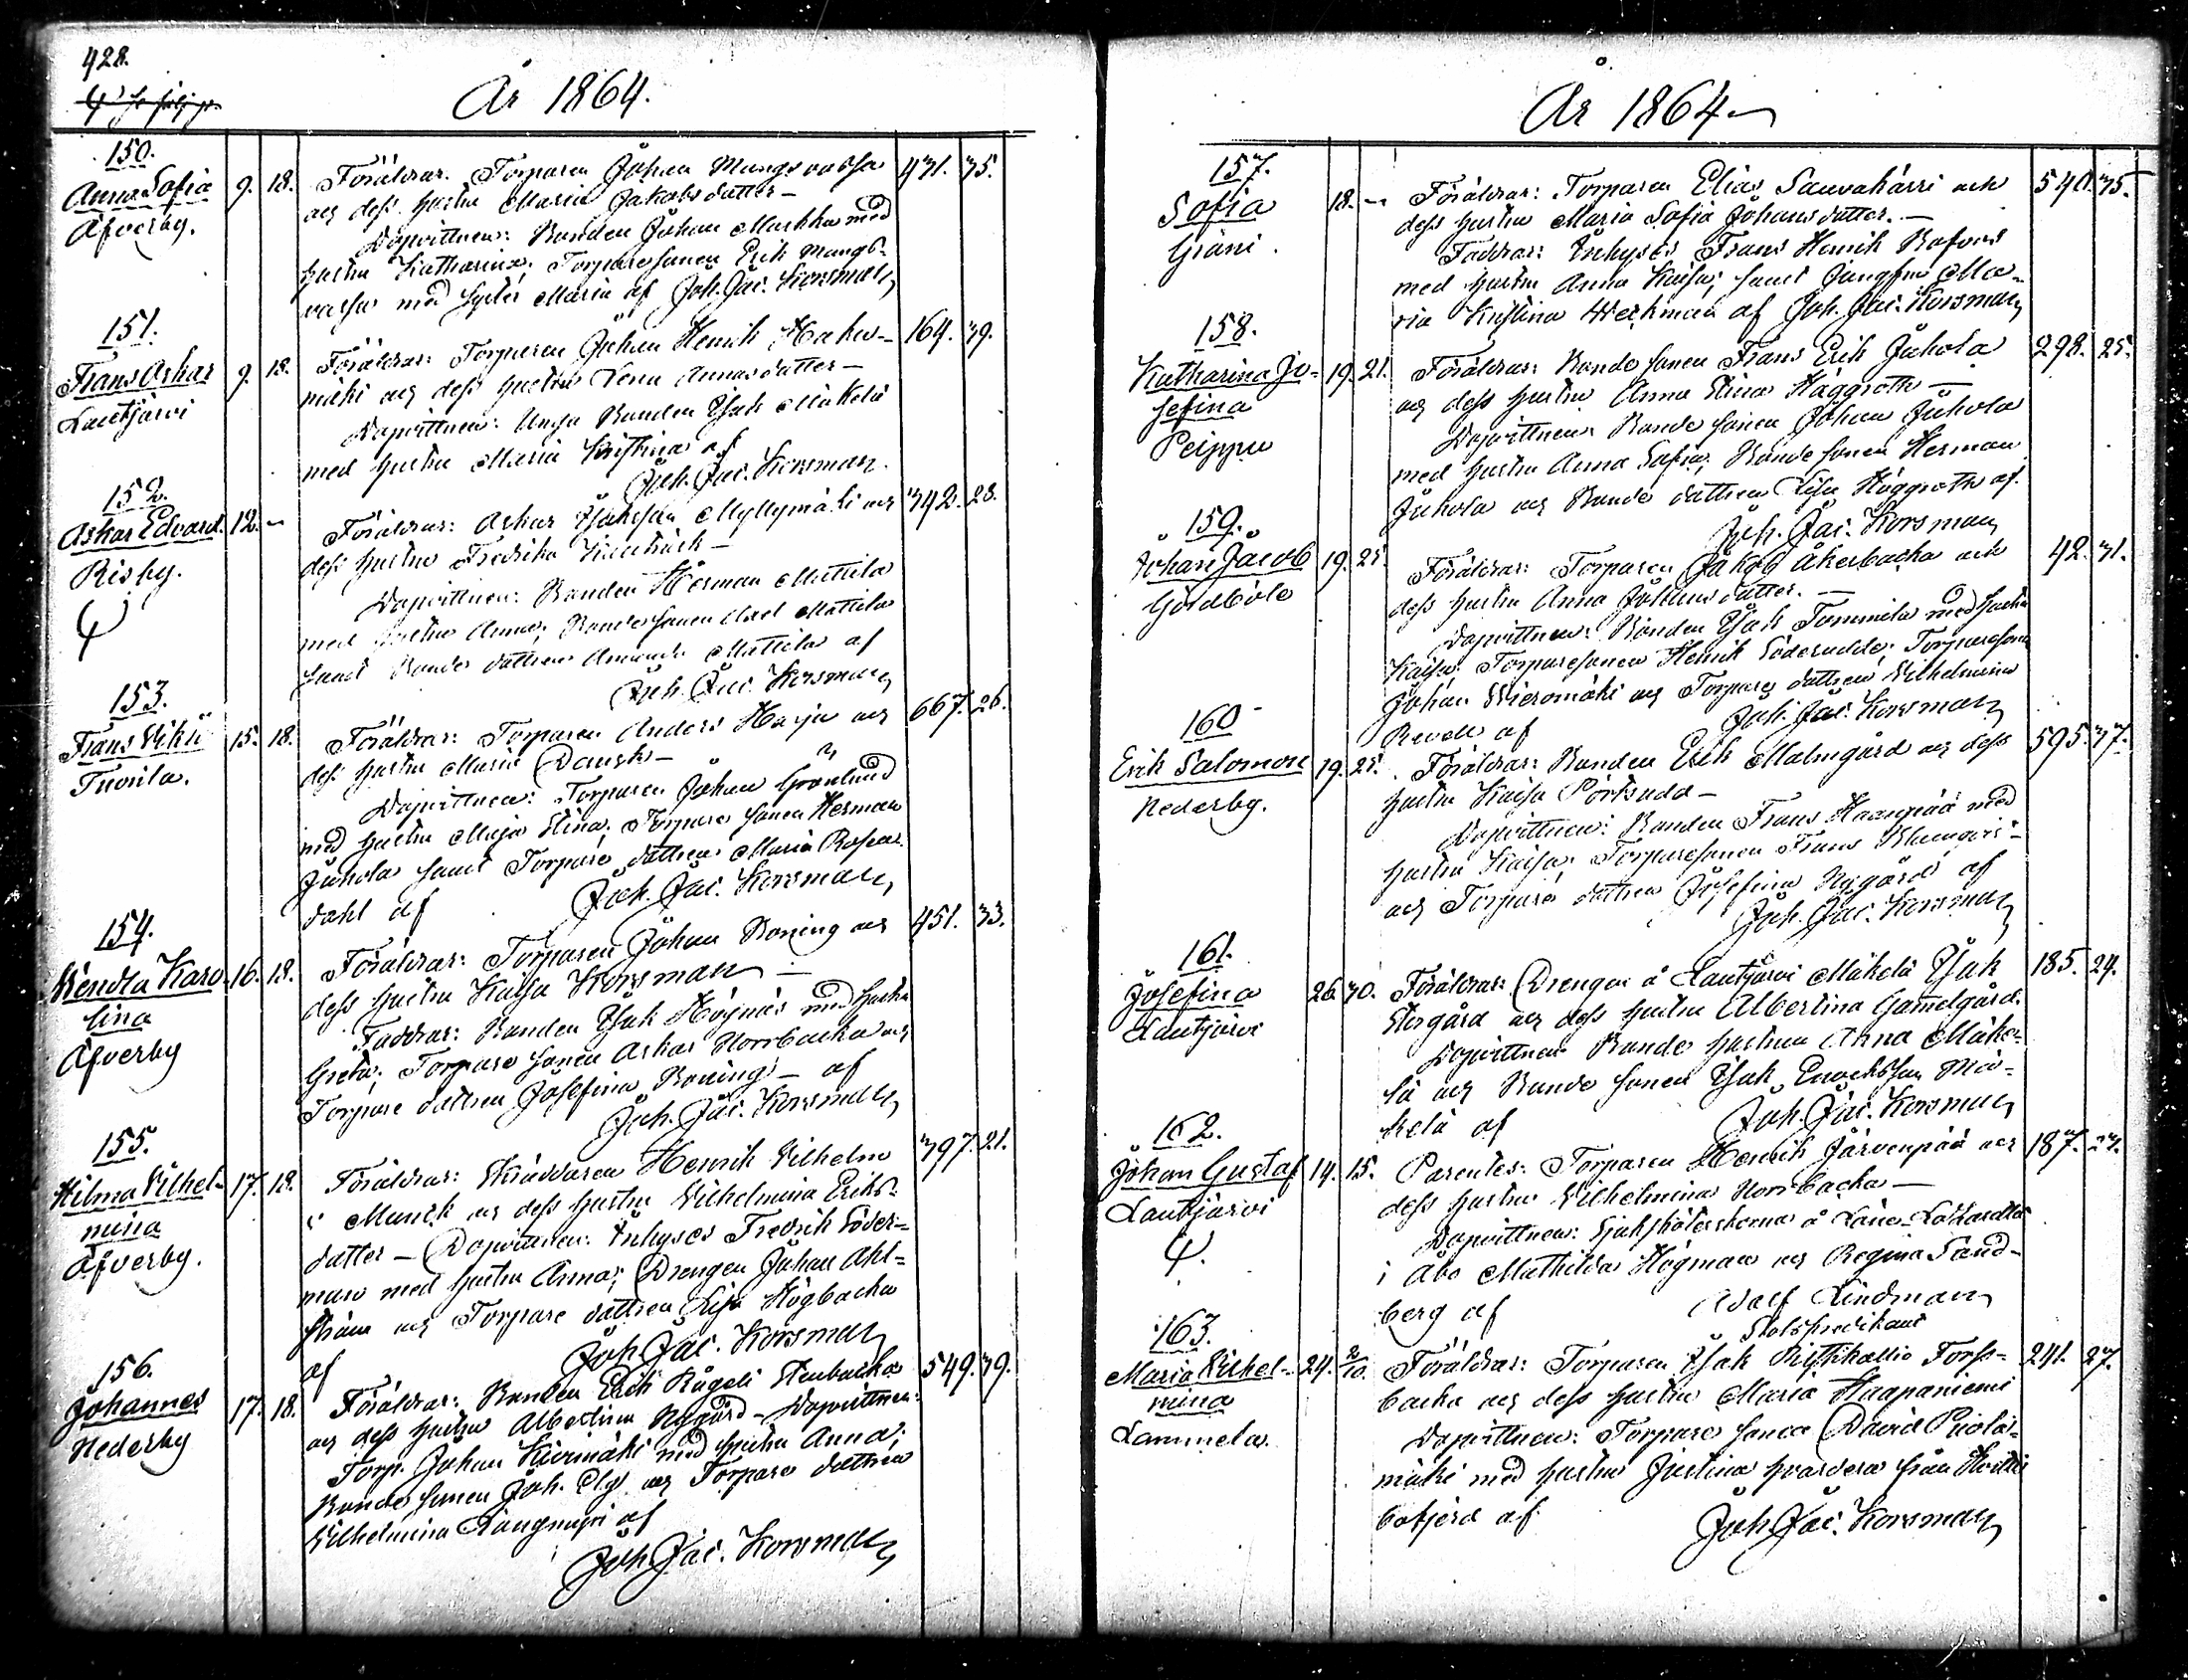 428.
År 1864.
150.
Anna Sofia 9. 18. Föräldrar: Torparen Johan Mangsvassa 471. 35.
Äfverby. och dess hustru Maria Jakobsdotter –
Dopvittnen: Bonden Johan Markkha med
hustru Katharina; Torparesonen Erik Mangs-
vassa med syster Maria af Joh. Jac. Korsman
151.
Frans Oskar 9. 18. Föräldrar: Torparen Johan Henrik 164. 39.
Lautjärvi mäki och dess hustru Lena Annasdotter –
Dopvittnen: Unga Bonden Isak Mäkelä
med hustru Maria Kristina af
Joh. Jac. Korsman.
152.
Oskar Edvard. 12. – Föräldrar: Oskar Isaksson Myllymäki och 342. 28.
Risby. dess hustru Fredrika
Dopvittnen: Bonden Herman Mattila
med hustru Anna; Bondesonen Mattila
samt Bonde dottren Amanda Mattila af
Joh. Jac. Korsman
153.
Frans Vihti 15. 18. Föräldrar: Torparen Anders Harju och 667. 26.
Tuorila. dess hustru Maria Dansk –
Dopvittnen: Torparen Johan Grönlund
med hustru Maja Stina; Torpare sonen Herman
Juhola samt Torpare dottren Maria Rosen-
dahl af Joh. Jac. Korsman
154.
Wendla Karo- 16. 18. Föräldrar: Torparen Johan Roning och 451. 33.
lina dess hustru Kaisa Korsman –
Äfverby Faddrar: Bonden Isak Högnäs med hustru
Greta; Torpare sonen Oskar Norrbacka och
Torpare dottren Josefina Roning – af
Joh. Jac. Korsman
155.
Hilma Vilhel- 17. 18. Föräldrar: Skräddaren Henrik Vilhelm 397. 21.
mina Munck och dess hustru Vilhelmina Eriks-
Äfverby. dotter – Dopvittnen: Inhyses Fredrik Söder-
man med hustru Anna; Drengen Johan Ahl-
ström och Torpare dottren Lisa Högbacka
af Joh. Jac. Korsman
156.
Johannes 17. 18. Föräldrar: Bonden Erik Rågeli Stenbacka 549. 39.
Nederby och dess hustru Albertina Nygård – Dopvittnen:
Torp. Johan Kivimäki med hustru Anna;
Bonde sonen Joh. och Torpare dottren
Vilhelmina Långmyri af
Joh. Jac. Korsman
År 1864
157.
Sofia 18. – Föräldrar: Torparen Elias Sauvahärri och 540. 35.
Giäni. dess hustru Maria Sofia Johansdotter. –
Faddrar: Inhyses Frans Henrik Rafors
med hustru Anna Kaisa; samt Jungfru Ma-
ria Kristina Heikman af Joh. Jac. Korsman
158.
Katharina Jo- 19. 21. Föräldrar: Bonde sonen Frans Erik Juhola 298. 25.
sefina och dess hustru Anna Stina Häggroth –
Peippu Dopvittnen: Bonde sonen Johan Juhola
med hustru Anna Sofia; Bonde sonen Herman
Juhola och Bonde dottren Lisa Häggroth af.
Joh. Jac. Korsman
159.
Johan Jacob 19. 25. Föräldrar: Torparen Jakob Åkerbacka och 42. 31.
Gördböle dess hustru Anna Johansdotter. –
Dopvittnen: Bonden Isak Tommila med hustru
Kaisa; Torparesonen Henrik Söderudde; Torparesonen
Johan Wieromäki och Torpare dottren Vilhelmina
Revell af Joh. Jac. Korsman
160
Erik Salomon 19. 25. Föräldrar: Bonden Erik Malmgård och dess 595. 37.
Nederby. hustru Kaisa Pörtsudd –
Dopvittnen: Bonden Frans Haanpää med
hustru Kaisa; Torparesonen Frans
och Torpare dottren Josefina Nygård af
Joh. Jac. Korsman
161.
Josefina 26. 30. Föräldrar: Drengen å Lautjärvi Mäkelä Isak 185. 24.
Lautjärvi Storgård och dess hustru Albertina Gamelgård.
Dopvittnen: Bonde hustrun Anna Mäke-
lä och Bonde sonen Isak Enochsson Mä-
kelä af Joh. Jac. Korsman
162.
Johan Gustaf 14. 15. Parentes: Torparen Henrik Järvenpää och 187.
Lautjärvi dess hustru Vilhelmina Norrbacka –
Dopvittnen: Sjuksköterskorna å Läns-Lazarettet
i Åbo Mathilda Högman och Regina Sand-
berg af Adolf Lindman
Slottspredikant
163.
Maria Vilhel- 24. 2/10. Föräldrar: Torparen Isak Ristikallio Forss- 241. 27.
mina backa och dess hustru Maria Haapaniemi
Lammela. Dopvittnen: Torpare sonen David
mäki med hustru Justina hvardera från Hvittis
bofjerd af Joh. Jac. Korsman